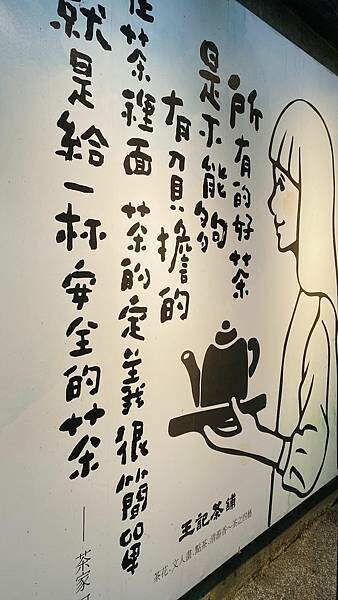 所有的好茶
是不能夠
有負擔的
在茶裡面 茶的定義很簡單
就是給一杯安全的茶
——茶家
王記茶鋪